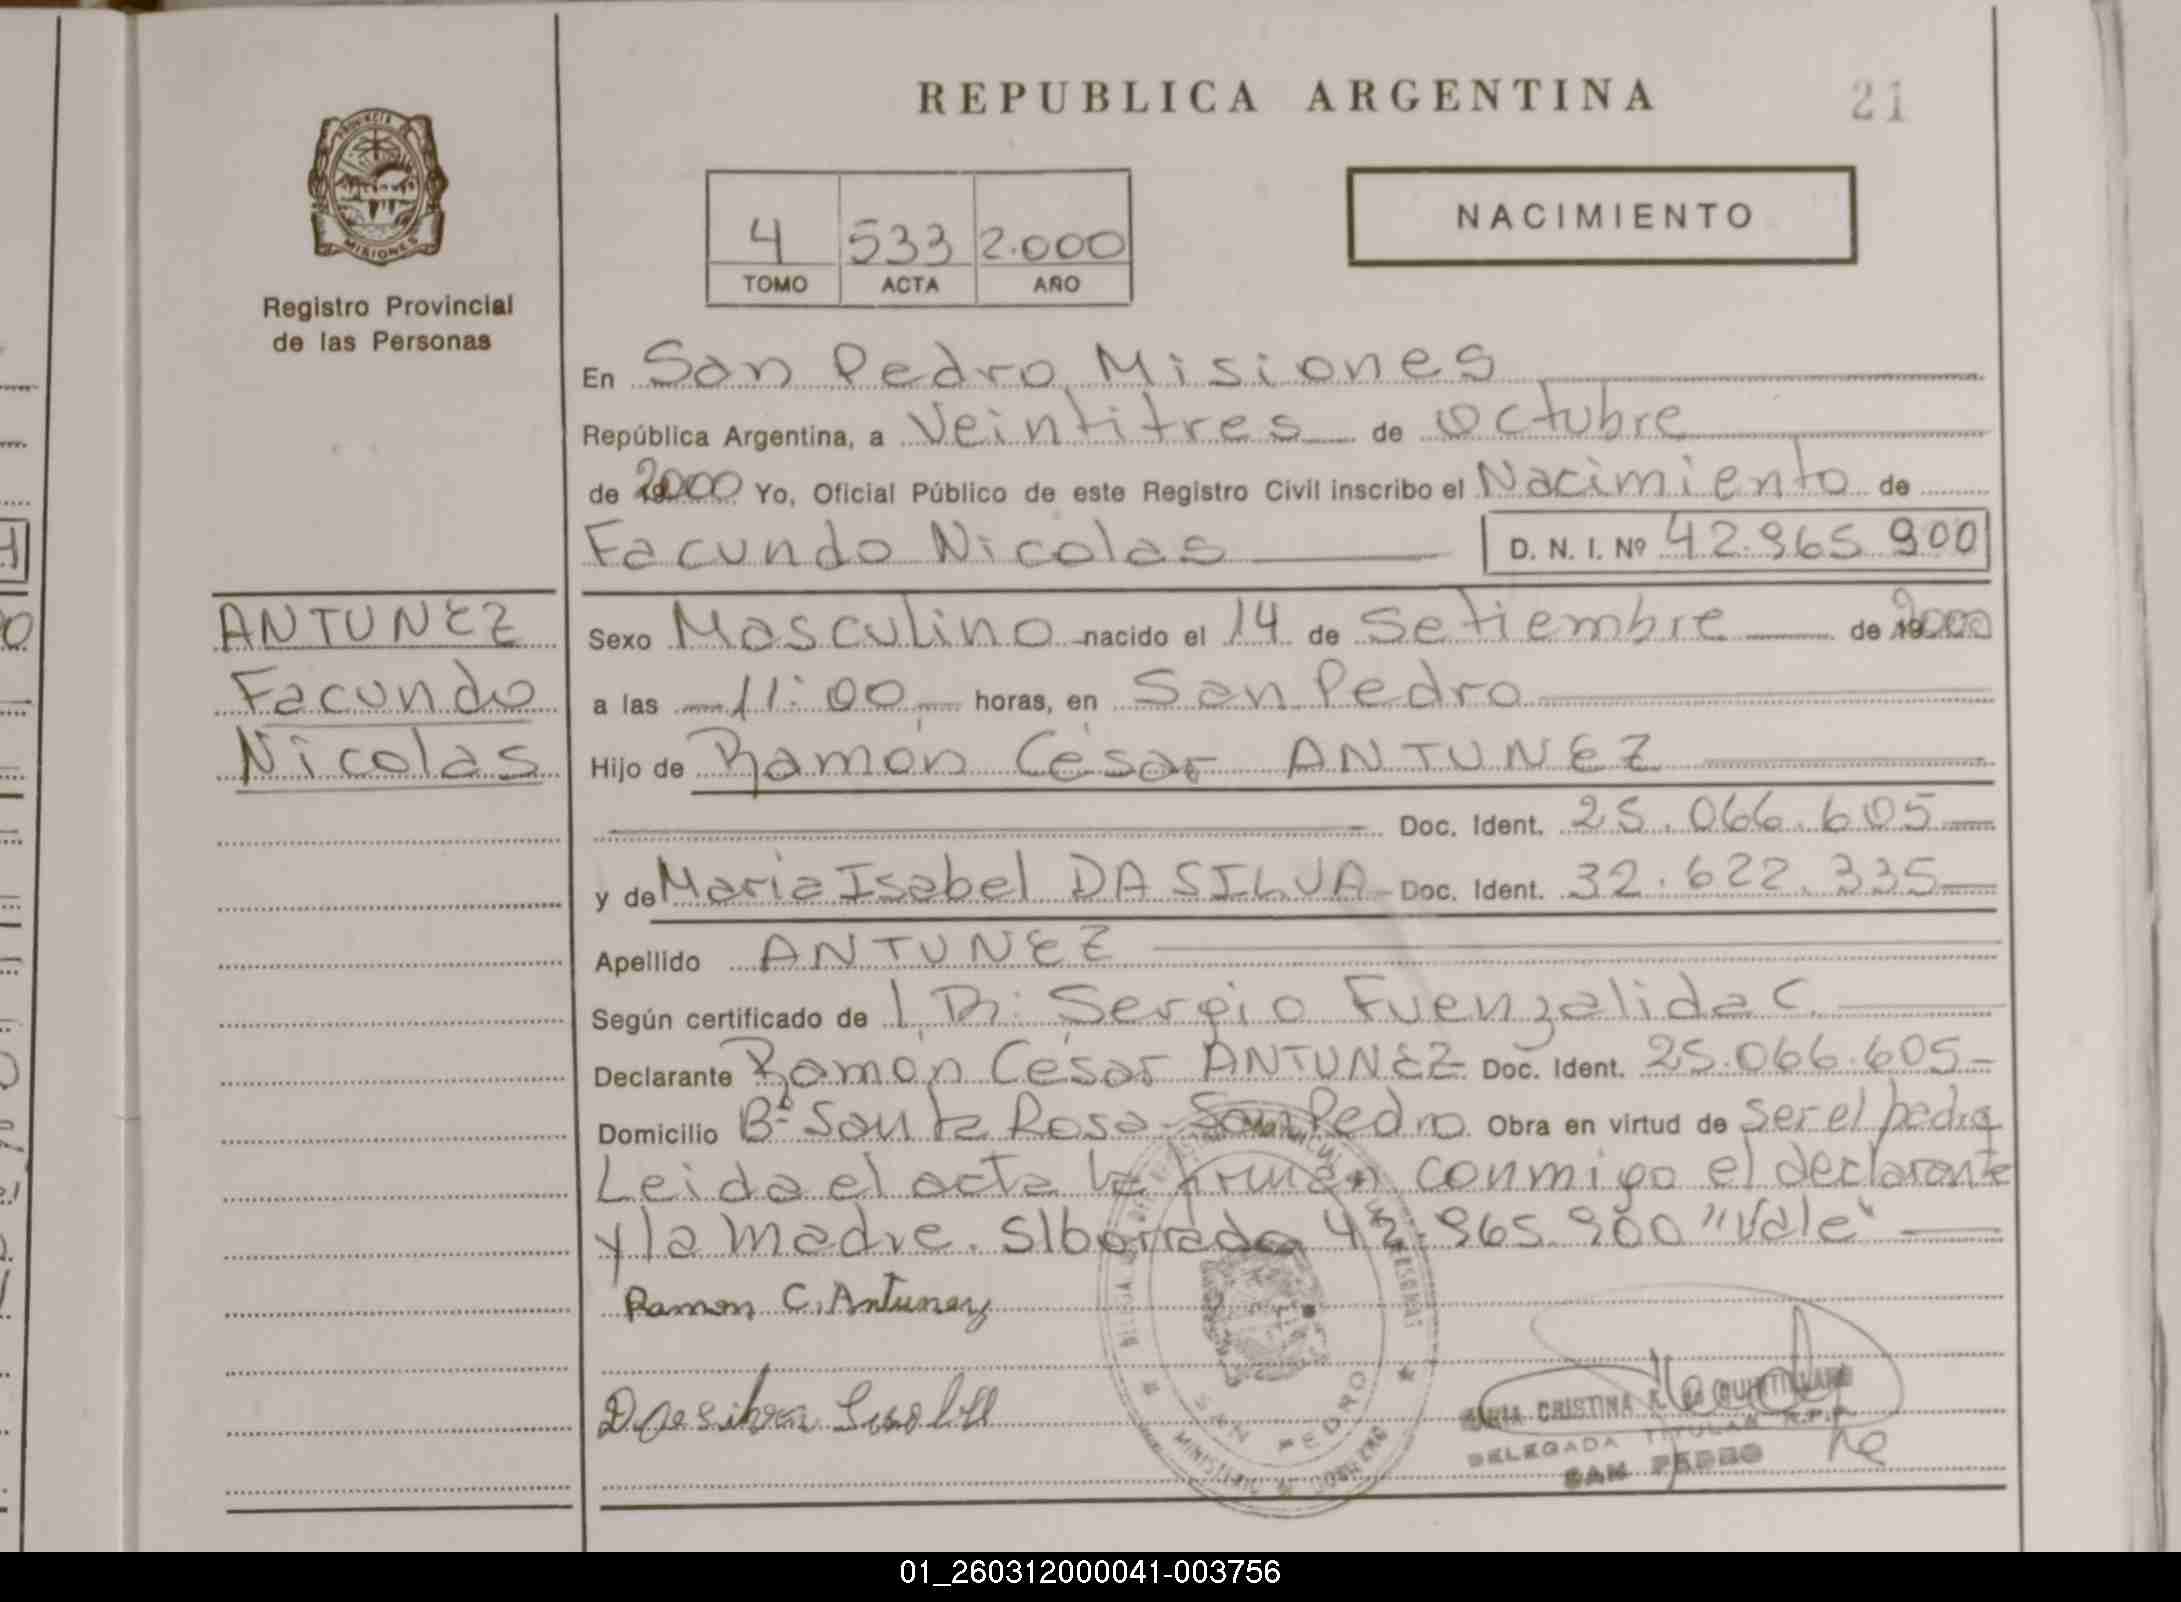 REPUBLICA ARGENTINA
21
PROVINCIA DE
MISIONES
Registro Provincial
de las Personas
4 533 2.000
TOMO ACTA AÑO
NACIMIENTO
En San Pedro, Misiones
República Argentina, a Veintitres de octubre
de 2000 Yo, Oficial Público de este Registro Civil inscribo el Nacimiento de
Facundo Nicolas D. N. I. Nº 42.965.900
ANTUNEZ
Facundo
Nicolas
Sexo Masculino nacido el 14 de Setiembre de 2000
a las 11:00 horas, en San Pedro
Hijo de Ramón César ANTUNEZ
Doc. Ident. 25.066.605
y de Maria Isabel DA SILVA Doc. Ident. 32.622.335
Apellido ANTUNEZ
Según certificado de Sergio Fuenzalida C.
Declarante Ramón César ANTUNEZ Doc. Ident. 25.066.605
Domicilio Bº Santa Rosa - San Pedro Obra en virtud de ser el padre
Leida el acta la firman conmigo el declarante
y la madre. S/borrado 42.965.900 "Vale"
Ramon C. Antunez
SAN PEDRO
MINISTERIO DE GOBIERNO
MARIA CRISTINA K. de QUINTILLAN
DELEGADA TITULAR R.P.P.
SAN PEDRO
01_260312000041-003756